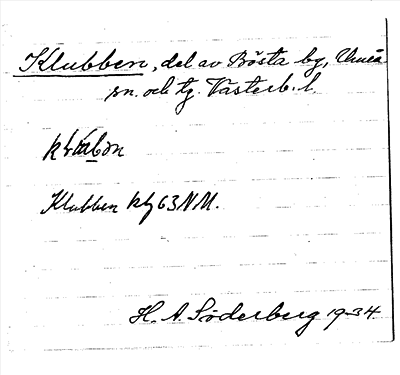 Klubben, del av Bösta by, Umeå
sn. och tg. Västerb. l.
Klubben kby 63 NM.
H. A. Söderberg 1934